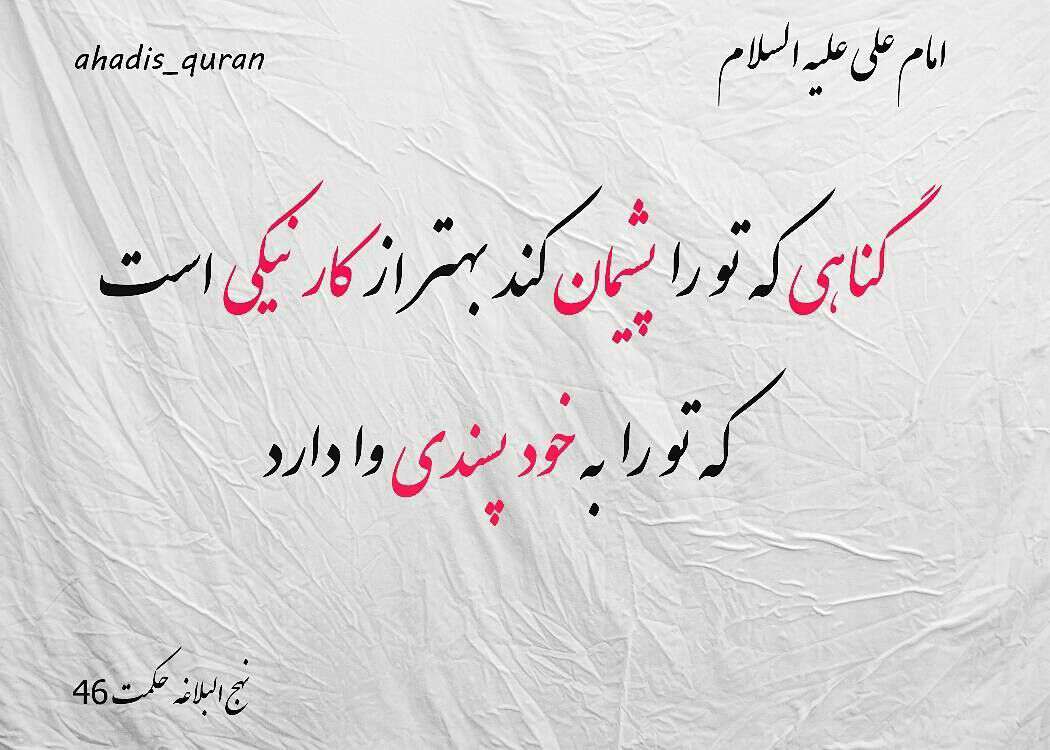 امام علی علیه السلام
ahadis_quran
گناهی که تو را پشیمان کند بهتر از کار نیکی است
که تو را به خود پسندی وا دارد
نهج البلاغه حکمت 46